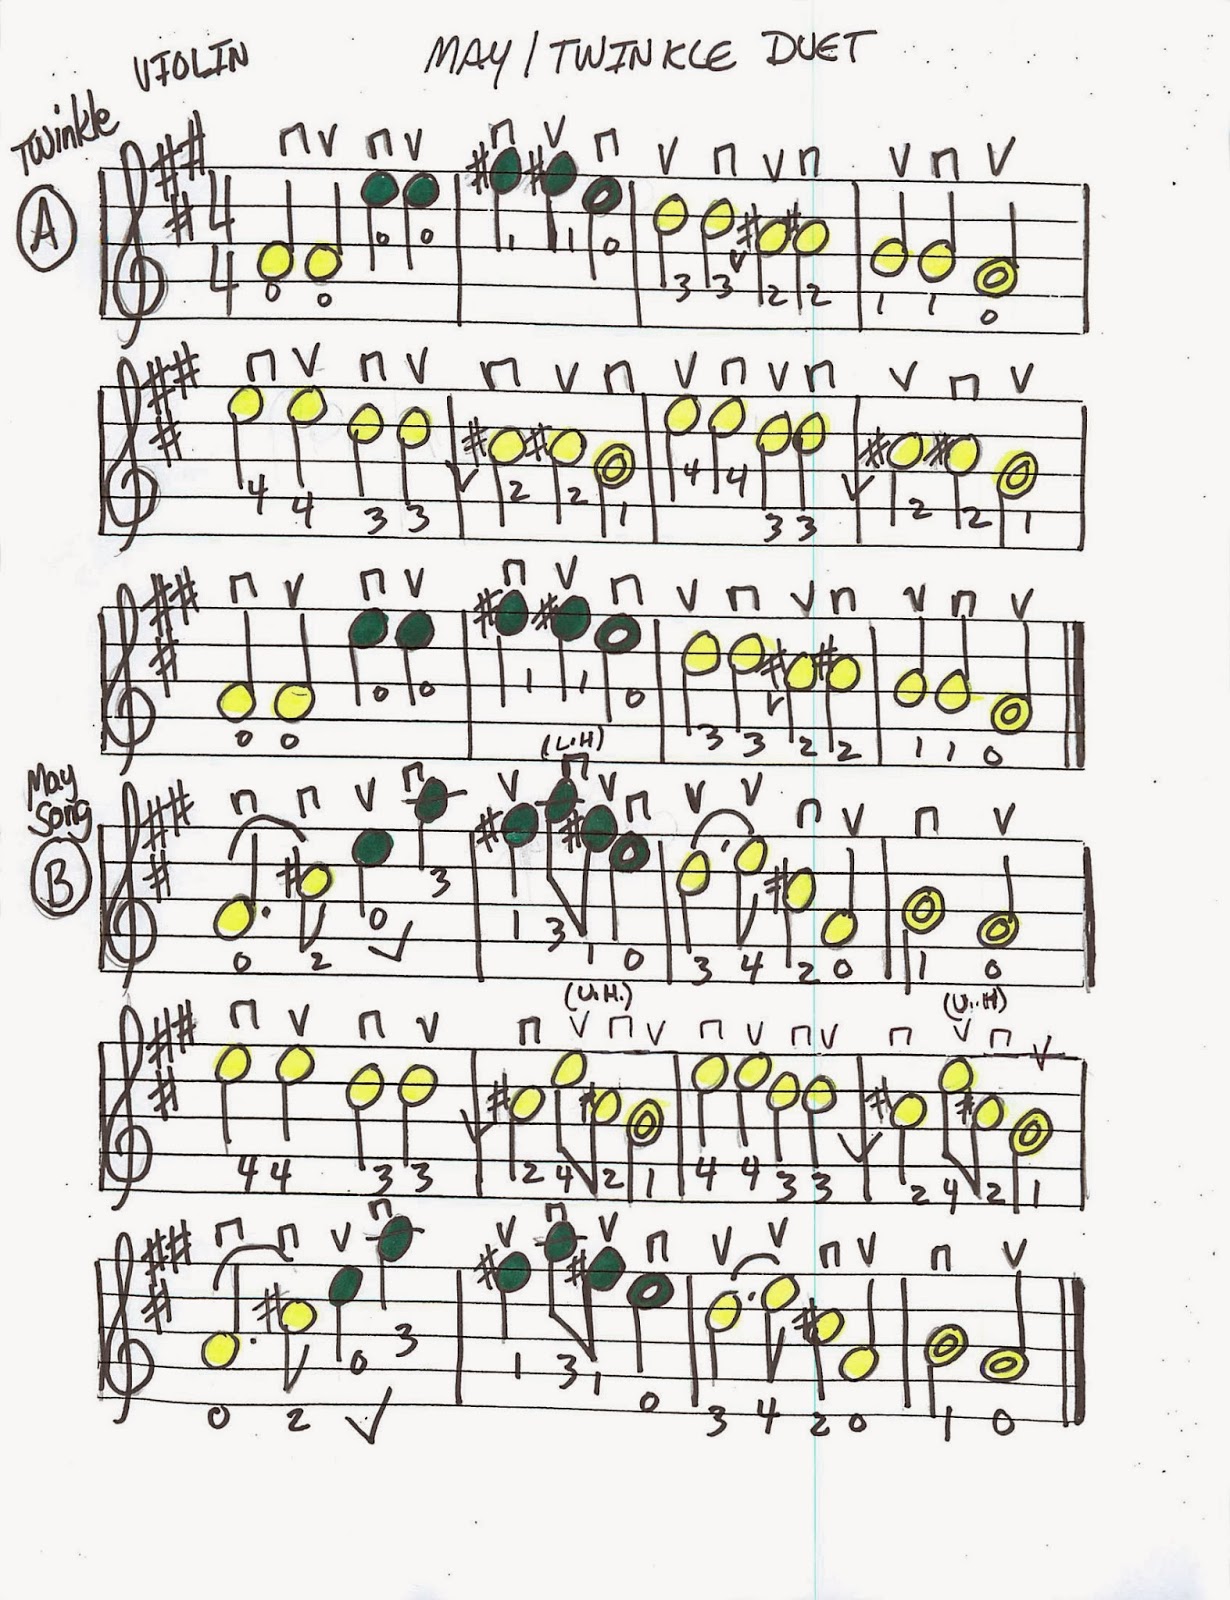 VIOLIN MAY/TWINKLE DUET
Twinkle
A
4
4
0 0 0 0 1 1 0 3 3 2 2 1 1 0
4 4 3 3 2 2 1 4 4 3 3 2 2 1
0 0 0 0 1 1 0 3 3 2 2 1 1 0
May
Song
B
(L.H)
0 2 0 3 1 3 1 0 3 4 2 0 1 0
(U.H.) (U.H)
4 4 3 3 2 4 2 1 4 4 3 3 2 4 2 1
0 2 0 3 1 3 1 0 3 4 2 0 1 0